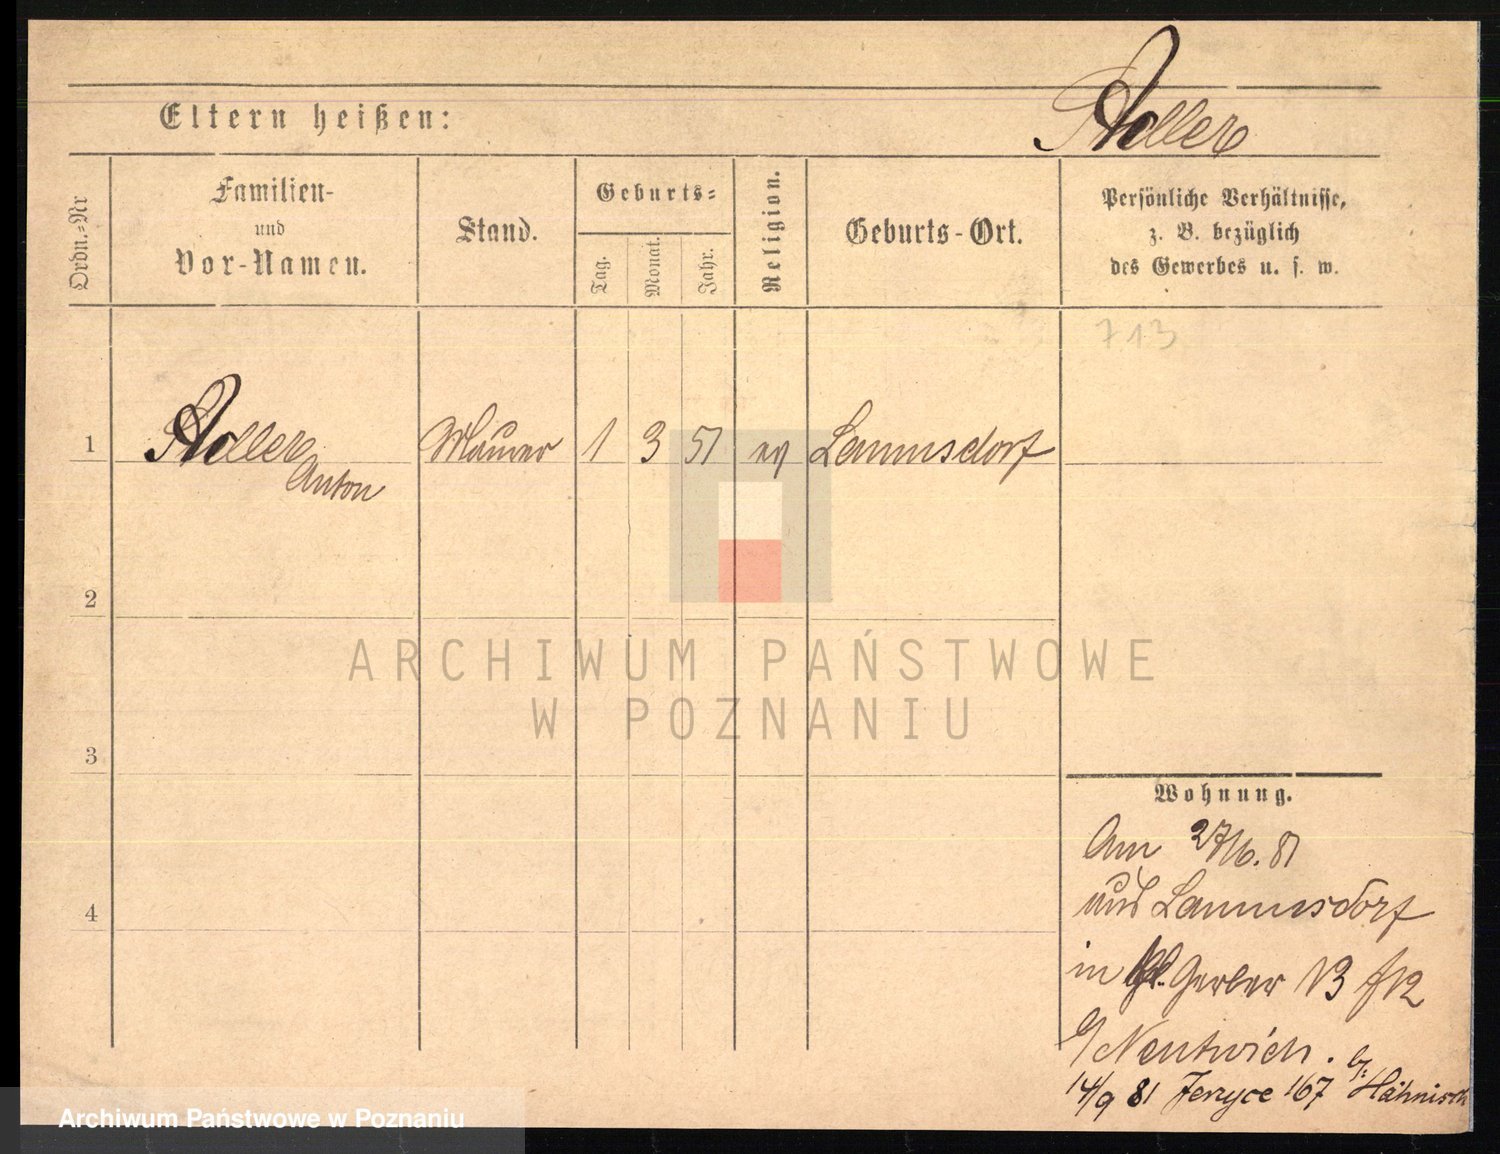 Adler
Eltern heißen:
Ordn.=Nr
Familien-
und
Vor-Namen.
Stand.
Geburts=
Tag.
Monat.
Jahr.
Religion.
Geburts-Ort.
Persönliche Verhältnisse,
z. B. bezüglich
des Gewerbes u. s. w.
713
1 Adler Maurer 1 3 51 ev Lammsdorf
Anton
2
ARCHIWUM PAŃSTWOWE
W POZNANIU
3
Wohnung.
Am 27/6. 81
aus Lammsdorf
4
in Gerber 13
b/ Nentwich.
14/9 81 Jerzyce 167 b/: Hähnisch
Archiwum Państwowe w Poznaniu